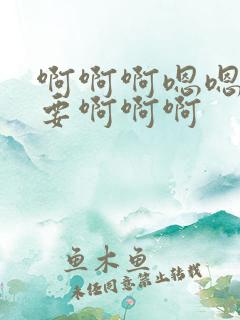 啊啊啊嗯嗯
要啊啊啊
鱼木鱼
未经同意禁止转载